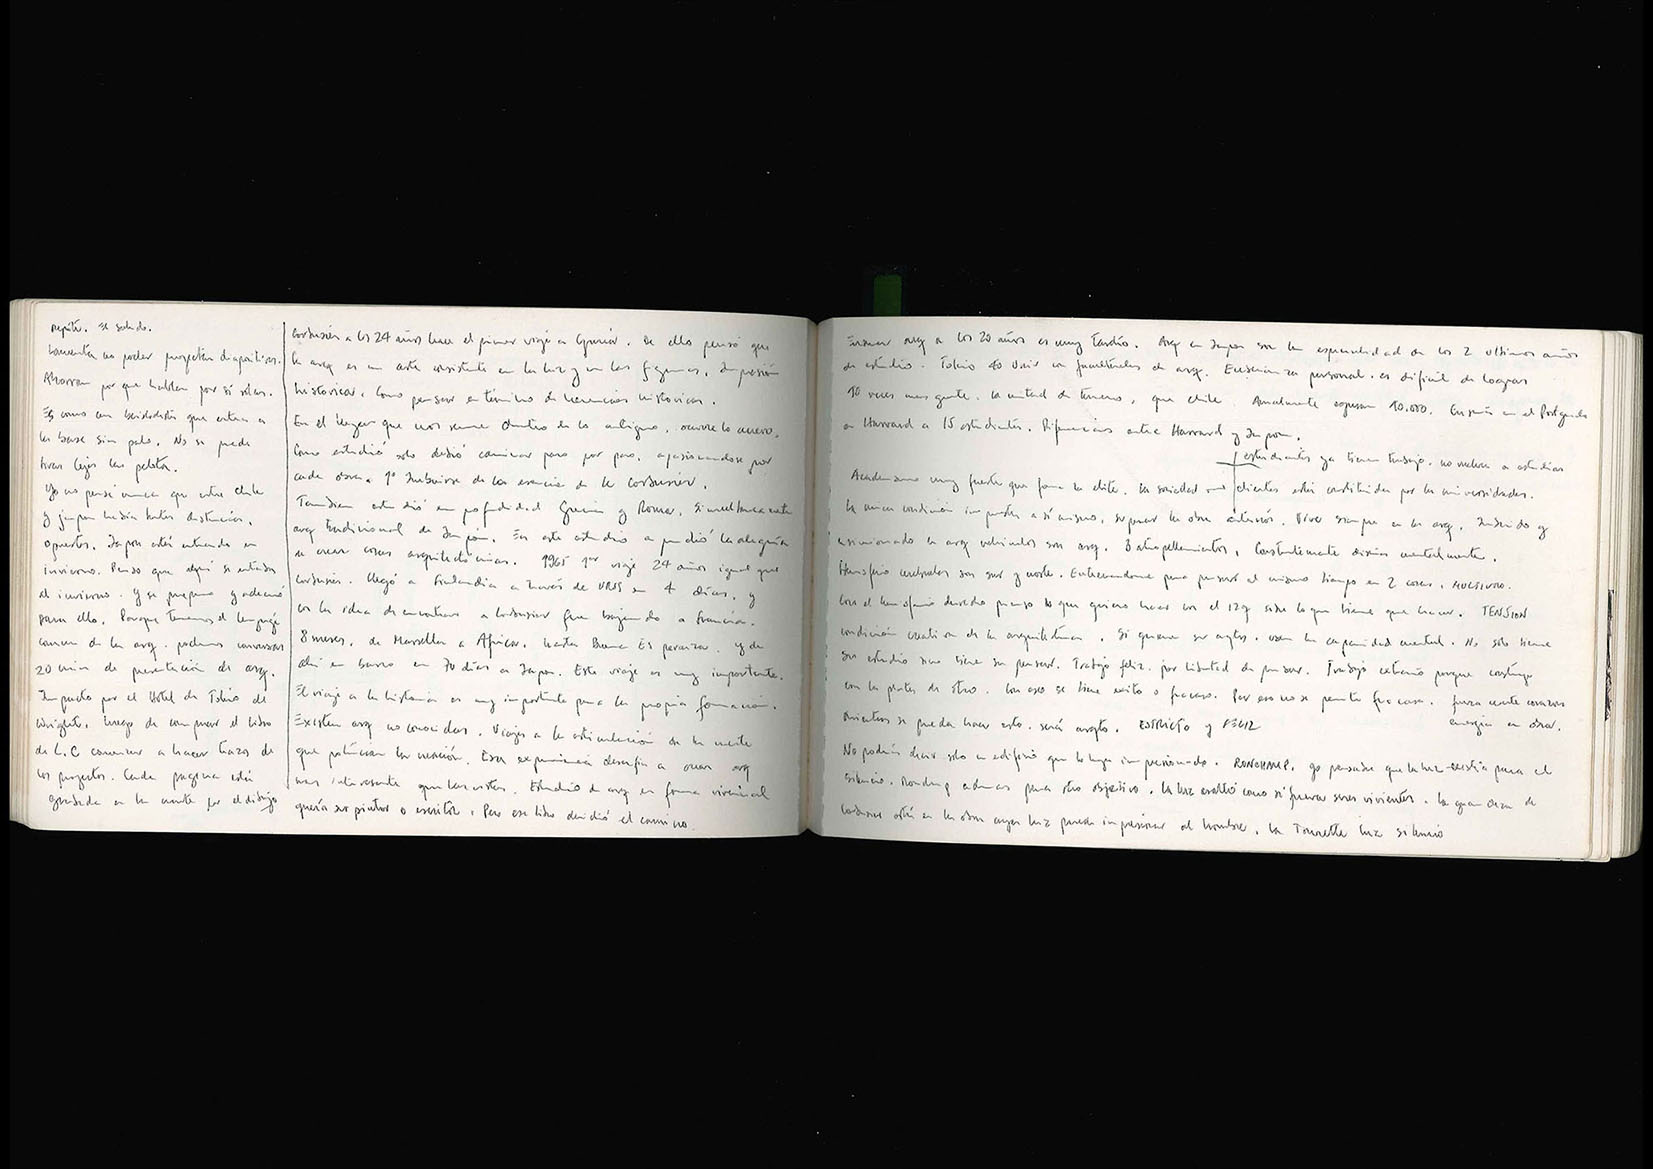 repite. se saludo.
Lamenta no poder proyectar diapositivas.
Ahorran porque hablan por sí solas.
Es como un beisbolista que entra a
la base sin palo. No se puede
tirar lejos la pelota.
Yo no pensé nunca que entre Chile
y Japón había tantas distancias.
opuestos. Japón está entrando en
invierno. Pienso que aquí se entrada
al invierno. Y se prepara y adecuó
para ello. Porque tenemos el lenguaje
común de la arq. podemos conversar
20 min de presentación de arq.
Impacto por el Hotel de Tokio de
Wright. luego de comprar el libro
de L.C comenzar a hacer trazos de
los proyectos. Cada pagina está
grabada en la mente por el dibujo
Corbusier a los 24 años hace el primer viaje a Grecia. De ello pensó que
la arq es un arte consistente en la luz y en las figuras. Impresión
historica. como pensar en término de herencias historicas.
En el lugar que nos reune dentro de lo antiguo, ocurre lo nuevo.
Como estudió solo debió caminar paso por paso, apasionandose por
cada obra. 1º Imbuirse de la esencia de Le Corbusier.
Tambien estudió en profundidad Grecia y Roma. Simultaneamente
arq tradicional de Japón. En este estudio aprendió la alegria
de crear cosas arquitectónicas. 1965 1er viaje 24 años igual que
Corbusier. llegó a Finlandia a través de URSS en 4 días. y
con la idea de encontrar a Corbusier fue bajando a Francia.
8 meses. de Marsella a Africa. hasta Buena Esperanza. y de
ahí en barco en 70 días a Japon. Este viaje es muy importante.
El viaje a la historia es muy importante para la propia formación.
Existen arq no conocidas. Viajes a la articulación de la mente
que potencian la creación. Esa experiencia desafía a crear arq
mas interesante que las vistas. Estudio de arq en forma vivencial
quería ser pintor o escritor. Pero ese libro decidió el camino.
Enseñar arq a los 20 años es muy tardío. Arq en Japon son la especialidad de los 2 ultimos años
de estudio. Tokio 40 Univ con facultades de arq. Enseñanza personal es dificil de lograr
10 veces mas gente. la mitad de terreno, que chile. Anualmente egresan 10.000. Enseña en el Postgrado
en Harvard a 15 estudiantes. Diferencias entre Harvard y Japon.
estudiantes ya tienen trabajo. no vuelven a estudiar
Academismo muy fuerte que forma la elite. la sociedad clientes están constituidos por las universidades.
la unica condición impuesta a sí mismo, superar la obra anterior. Vive siempre en la arq. Inserido y
arq vehiculos son arq. 3 atropellamientos. Constantemente diseña mentalmente.
Hemisferio cerebrales son sur y norte. Entrenandome para pensar al mismo tiempo en 2 cosas.
con el hemisferio derecho pienso lo que quiero hacer con el izq sobre lo que tiene que hacer. TENSION
condición creativa de la arquitectura. Si quieren ser arqtos. usen la capacidad mental. No solo tiene
su estudio sino tiene su pensar. Trabajo feliz. por libertad de pensar. Trabajo extraño porque construyo
con la plata de otro. Con eso se tiene exito o fracaso. Por eso no se permite fracasar. fuerza mente corazon
Mientras se pueda hacer esto. será arqto. ESTRICTO y FELIZ energia en obra.
No podría decir solo un edificio que lo haya impresionado. RONCHAMP. yo pensaba que la luz existía para el
silencio. Ronchamp ademas para otro objetivo. la luz como si fueran seres vivientes. la gran obra de
Corbusier está en la obra cuya luz puede impresionar al hombre. la Tourette luz silencio